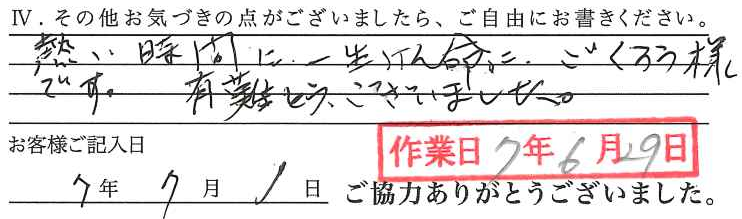 Ⅳ．その他お気づきの点がございましたら、ご自由にお書きください。
熱い時間に一生けん命に、ごくろう様
です。 有難とう、ございました。
お客様ご記入日
作業日7年6月29日
7年7月1日 ご協力ありがとうございました。